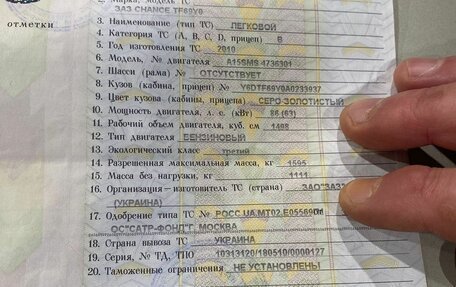 отметки
2. Марка, модель ТС
ЗАЗ CHANCE TF69Y0
3. Наименование (тип ТС) ЛЕГКОВОЙ
4. Категория ТС (A, B, C, D, прицеп) B
5. Год изготовления ТС 2010
6. Модель, № двигателя A15SMS 4736301
7. Шасси (рама) № ОТСУТСТВУЕТ
8. Кузов (кабина, прицеп) № Y6DTF69Y0A0233937
9. Цвет кузова (кабины, прицепа) СЕРО-ЗОЛОТИСТЫЙ
10. Мощность двигателя, л. с. (кВт) 86 (63)
11. Рабочий объем двигателя, куб. см 1498
12. Тип двигателя БЕНЗИНОВЫЙ
13. Экологический класс третий
14. Разрешенная максимальная масса, кг 1595
15. Масса без нагрузки, кг 1111
16. Организация—изготовитель ТС (страна) ЗАО"ЗАЗ"
(УКРАИНА)
17. Одобрение типа ТС № РОСС.UA.MT02.
ОС"САТР-ФОНД"Г. МОСКВА
18. Страна вывоза ТС УКРАИНА
19. Серия, № ТД, ТПО 10313120/180510/0000127
20. Таможенные ограничения НЕ УСТАНОВЛЕНЫ